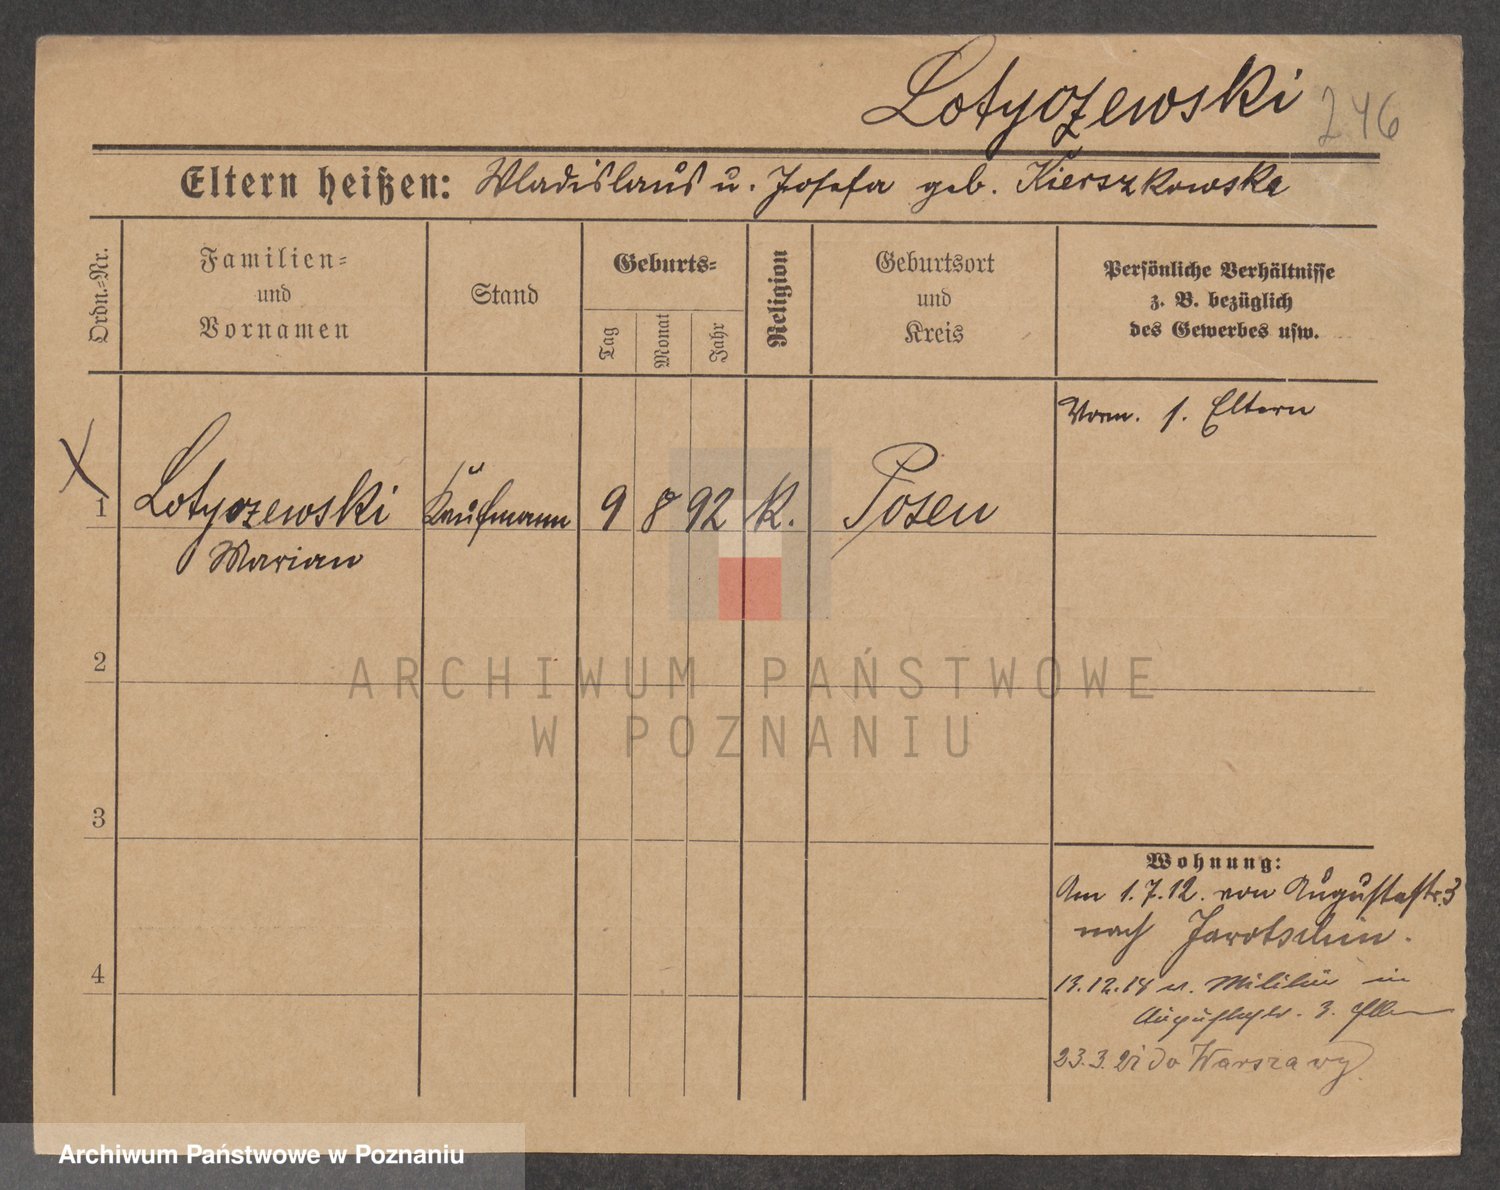 Lotyczewski 246
Eltern heißen: Wladislaus u. Josefa geb. Kierszkowska
Ordn.=Nr.
Familien=
und
Vornamen
Stand
Geburts=
Tag
Monat
Jahr
Religion
Geburtsort
und
Kreis
Persönliche Verhältnisse
z. B. bezüglich
des Gewerbes usw.
Vorm. s. Eltern
X
1 Lotyczewski Kaufmann 9 8 92 K. Posen
Marian
2
3
4
Wohnung:
Am 1.7.12. von Augustastr. 3
nach Jarotschin.
13.12.18 v. Militär in
Augustastr. 3.
23.3.21 do Warszawy
ARCHIWUM PAŃSTWOWE
W POZNANIU
Archiwum Państwowe w Poznaniu